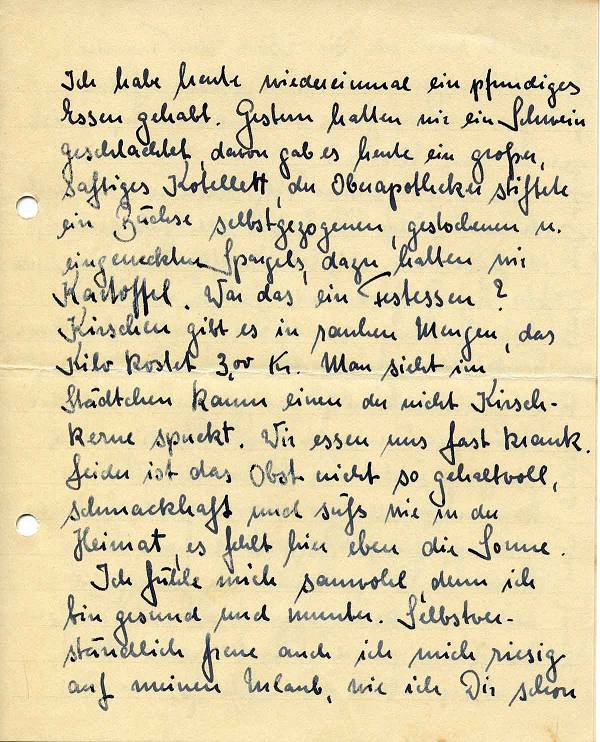 Ich habe heute wiedereinmal ein pfundiges
Essen gehabt. Gestern hatten wir ein Schwein
geschlachtet, davon gab es heute ein großer,
saftiges Kotellett, der Oberapotheker stiftete
ein Büchse selbstgezogenen, gestochenen u.
eingeweckten Spargels, dazu hatten wir
Kartoffel. War das ein Festessen?
Kirschen gibt es in rauhen Mengen, das
Kilo kostet 3,00 Kr. Man sieht im
Städtchen kaum einen der nicht Kirsch-
kerne spuckt. Wir essen uns fast krank.
Leider ist das Obst nicht so gehaltvoll,
schmackhaft und süß wie in der
Heimat, es fehlt hier eben die Sonne.
Ich fühle mich sauwohl, denn ich
bin gesund und munter. Selbstver-
ständlich freue auch ich mich riesig
auf meinen Urlaub, wie ich Dir schon